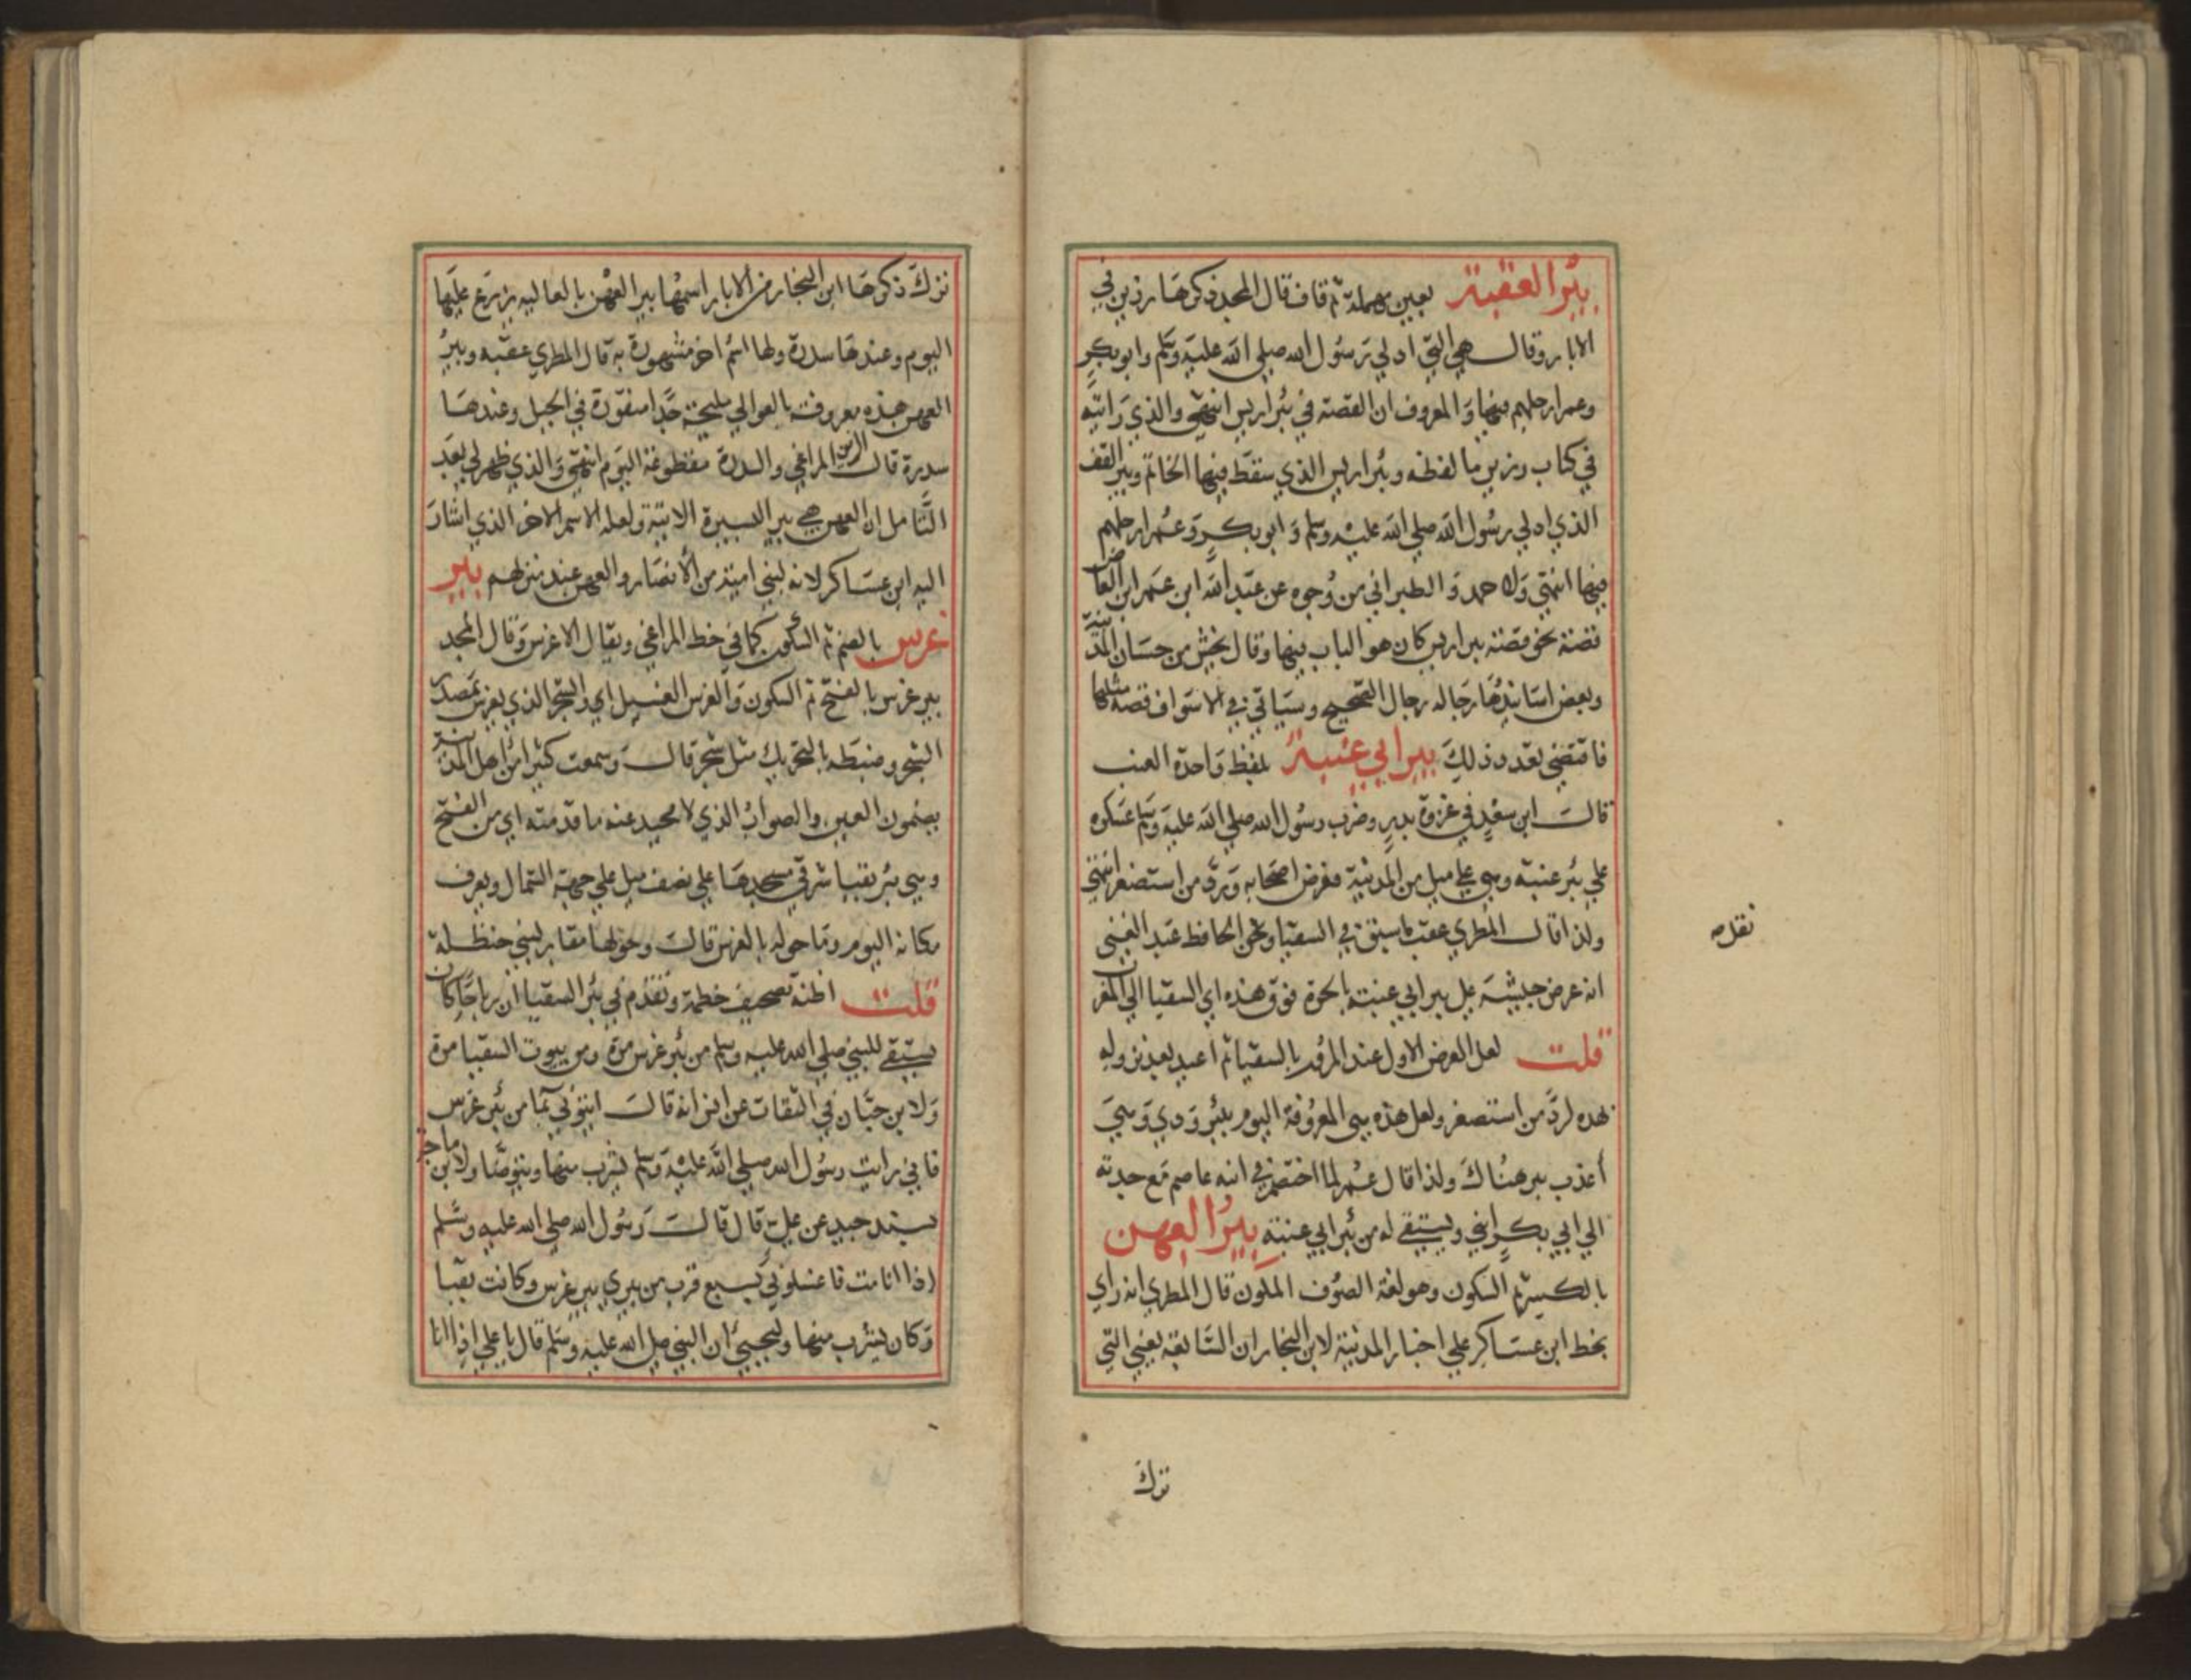 بئر العقبة بعين مهملة ثم قاف قال المجد ذكرها رزين في
الابار وقال هي التي ادلي رسول الله صلي الله عليه وسلم وابوبكر
وعمر ارجلهم فيها والمعروف ان القصة في بئر اريس انتهي والذي رايته
في كتاب رزين ما لفظه وبئر اريس الذي سقط فيها الخاتم وبير القف
الذي ادلي رسول الله صلي الله عليه وسلم وابوبكر وعمر ارجلهم
فيها انتهي ولاحمد والطبراني من وجوه عن عبد الله ابن عمر ابن العاص
قصة نحو قصة بير اريس كان هو الباب فيها وقال بحش من حسان المدينة
وبعض اسانيدها رجاله رجال الصحيح وسياتي في الاسواف قصة مثلها
فاقتضي تعدد ذلك بير ابي عنبة بلفظ واحدة العنب
قال ابن سعد في غزوة بدر وضرب رسول الله صلي الله عليه وسلم عسكره
علي بئر عنبه وهي علي ميل من المدينة فعرض اصحابه ورد من استصغر انتهي
ولذا قال المطري عقب ماسبق في السقيا ونحن الحافظ عبد الغني
نقل صه
انه عرض جيشه علي بير ابي عنبة بالحرة فوق هذه اي السقيا الي المغرب
قلت لعل العرض الاول عند المرور بالسقيا ثم اعيد بعد نزوله
بهده لرد من استصغر ولعل هذه هي المعروفة اليوم ببئر ودي وهي
أعذب بير هناك ولذا قال عمر لما اختصم في ابنه عاصم مع جدته
الي ابي بكر ابني ويستقي له من بئر ابي عنبة بير العهن
بالكسر ثم السكون وهو لغة الصوف الملون قال المطري انه راي
بخط ابن عساكر علي اخبار المدينة لابن النجار ان السابعة يعني التي
ترك
ترك ذكرها ابن النجار من الابار اسمها بير العهن بالعاليه يزرع عليها
اليوم وعندها سدرة ولها اسم اخر مشهورة به قال المطري عقبه وبير
العهن هذه معروفة بالعوالي مليحة جدا منقورة في الجبل وعندها
سدرة قال الزين المراغي والسدرة مقطوعة اليوم انتهي والذي ظهر لي بعد
التأمل ان العهن هي بير اليسيرة الاتية ولعله الاسم الاخر الذي اشار
اليه ابن عساكر لانه لبني امية من الأنصار والعهن عند منزلهم بير
غرس بالضم ثم السكون كما في خط المراغي ويقال الاغرس وقال المجد
بير غرس بالفتح ثم السكون والغرس الفسيل اي والشجر الذي يغرس مصدر
الشجر وضبطه بالتحريك مثل شجر قال وسمعت كثيرا من اهل المدينة
يضمون الغين والصواب الذي لا محيد عنه ماقدمته اي من الفتح
وهي بئر بقبا شرقي مسجدها علي نصف ميل علي جهة الشمال ويعرف
مكانه اليوم وماحوله بالغرس قال وحولها مقابر لبني حنظلة
قلت اظنه تصحيف خطمة وتقدم في بئر السقيا ان رباحا كان
يستقي للنبي صلي الله عليه وسلم من بئر غرس مرة ومن بيوت السقيا مرة
ولابن حبان في الثقات عن انس انه قال ايتوني بما من بئر غرس
فاني رايت رسول الله صلي الله عليه وسلم يشرب منها ويتوضا ولابن ماجة
بسند جيد عن علي قال قال رسول الله صلي الله عليه وسلم
اذا انا مت فاغسلوني بسبع قرب من بيري بير غرس وكانت بقبا
وكان يشرب منها وليحيي ان النبي صلي الله عليه وسلم قال ياعلي اذا انا